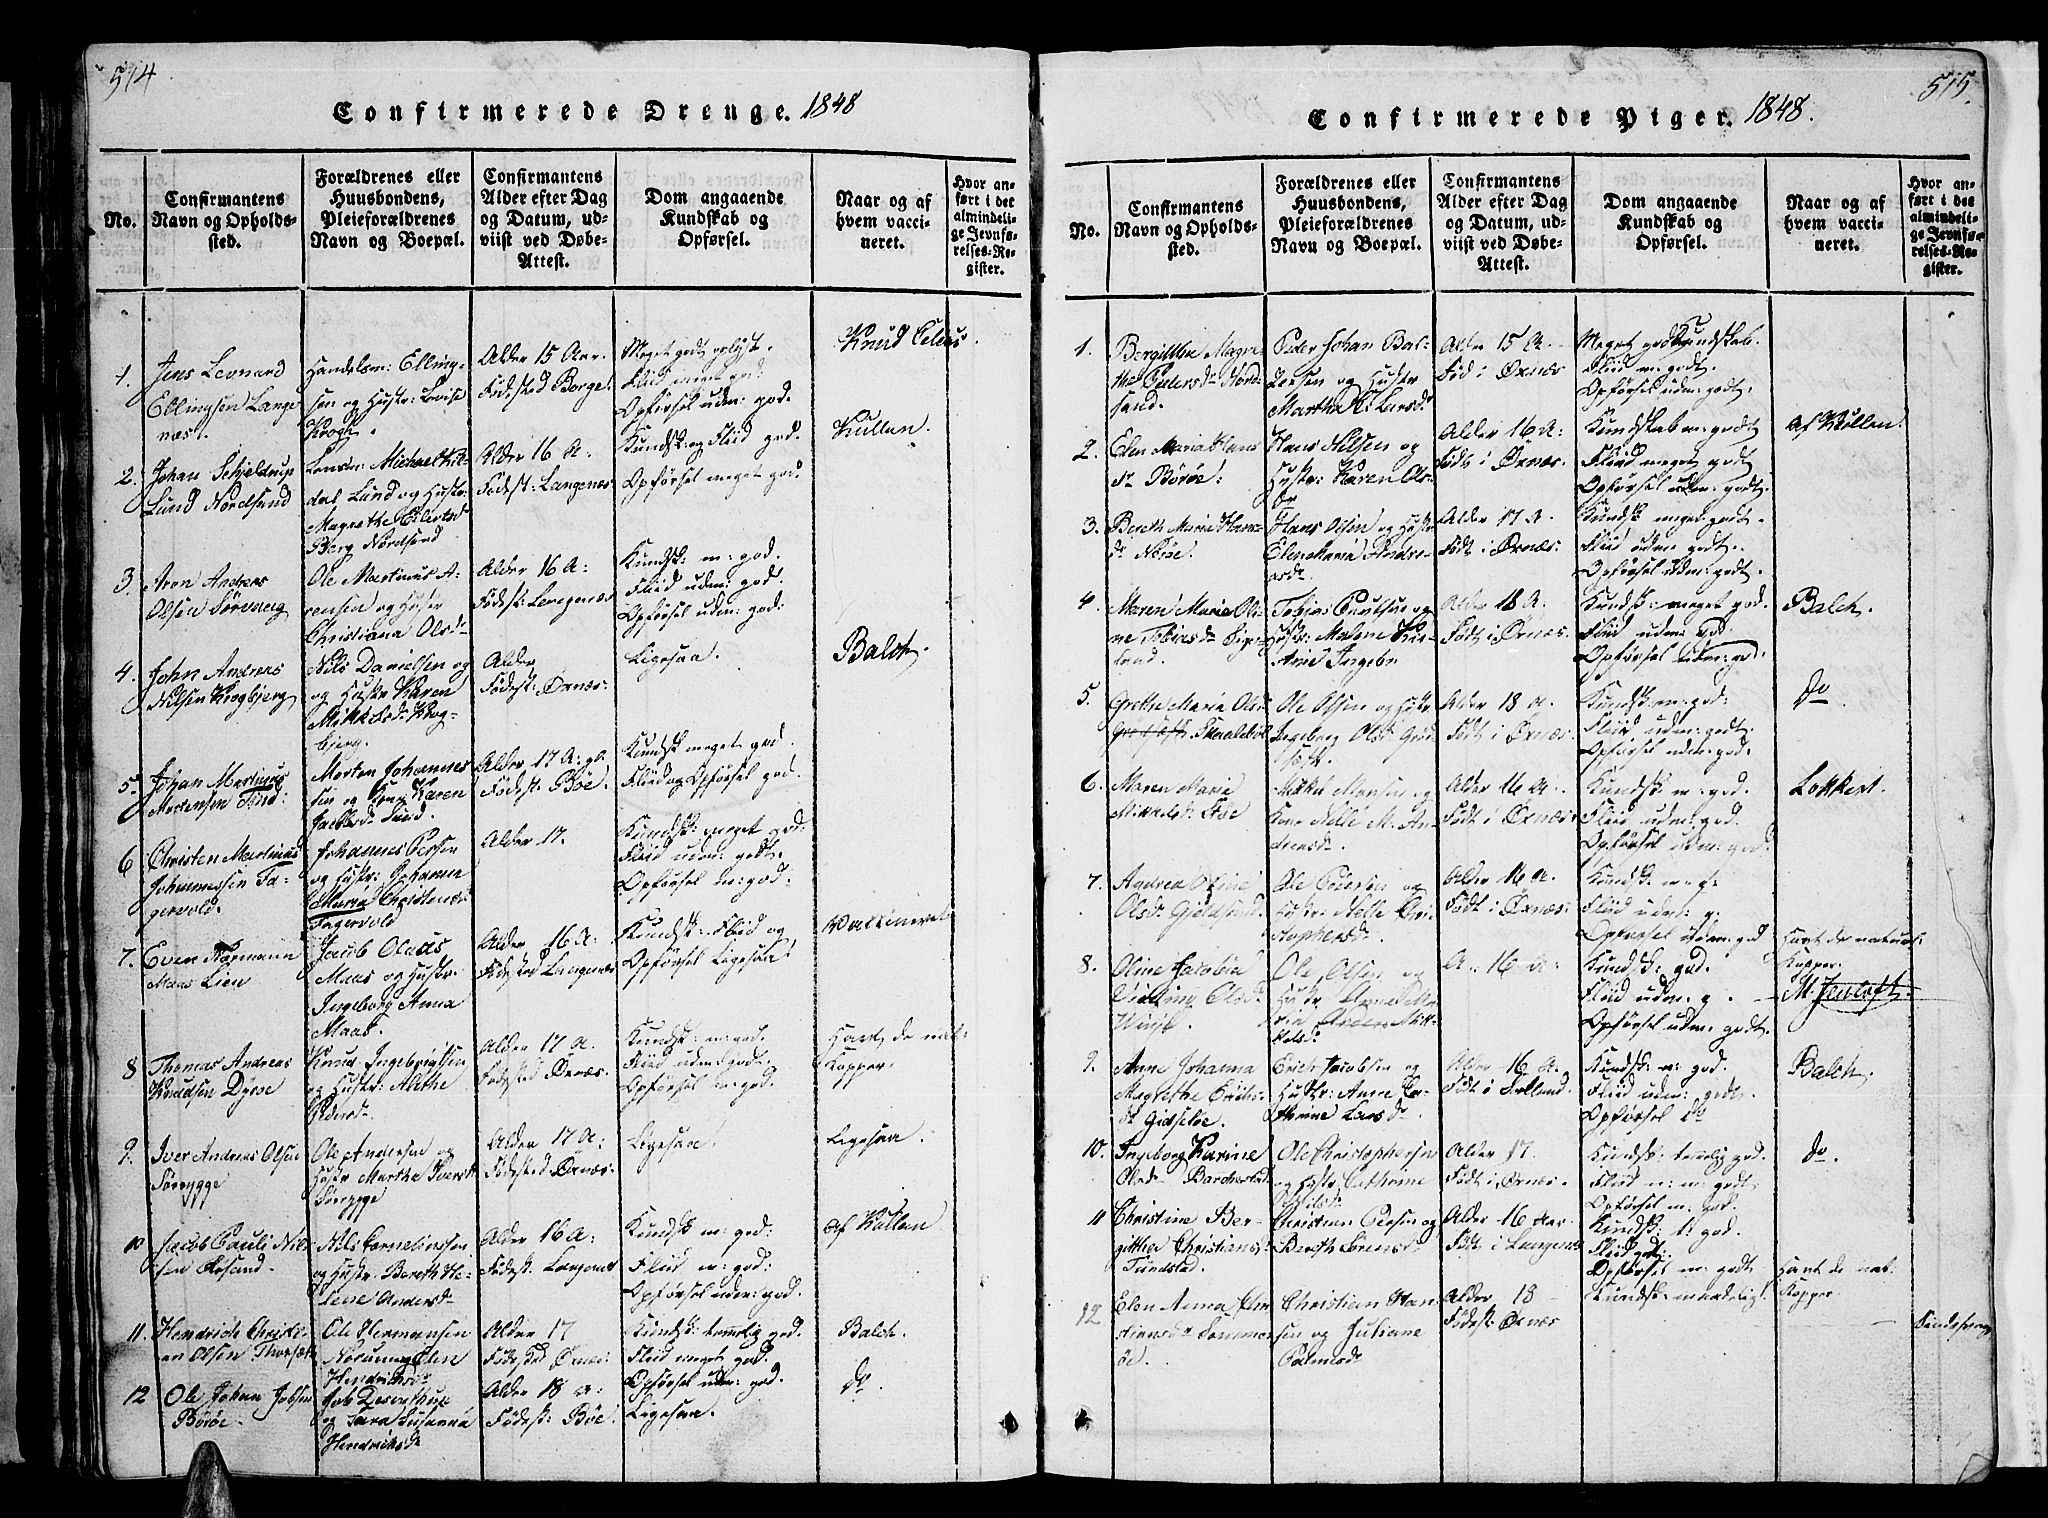 514
Confirmerede Drenge. 1848
No.
Confirmantens
Navn og Opholds-
sted.
Forældrenes eller
Huusbondens,
Pleieforældrenes
Navn og Boepæl.
Confirmantens
Alder efter Dag
og Datum, ud-
viist ved Døbe-
Attest.
Dom angaaende
Kundskab og
Opførsel.
Naar og af
hvem vacci-
neret.
Hvor an-
ført i det
almindeli-
ge Jevnfø-
relses-Re-
gister.
1.
Jens Leonard
Ellingsen Lange
næs.
Handelsm: Elling-
sen og Hustr: Lovise
Krogh.
Alder 15 Aar.
Fødested Borge.
Meget godt oplyst.
Fliid meget god:
Opførsel udm: god.
Knud
2.
Johan Schieldrup
Lund Nordsand
Lensm: Michael
dal Lund og Hustr:
Magrethe Eilertsd
Berg Nordsand
Alder 16 A.
Fødest: Langenæs
Kundsk: og Fliid god.
Opførsel meget god
Kullen.
3.
Aron Andreas
Olsen
Ole Martinus A-
rensen og Hustr
Christiana Olsd
Alder 16 A:
Fødest: Langenæs
Kundsk: m: god.
Fliid udm: god.
Opførsel udm: god:
4.
John Andreas
Nilsen Krogbjerg
Nils Danielsen og
og Hustr Karen
Mikkelsd: Krog-
bjerg.
Alder
Fødest: Ørnæs.
Ligesaa.
Balch.
5.
Johan Martinus
Mortensen
Morten Johannes
sen og Karen
Jacobsd
Alder 17 A:
Fødest: Bøe.
Kundsk meget god.
Fliid og Opførsel god.
6
Christen Martinus
Johannessen Fa-
gervold.
Johannes Persen
og Hustr: Johanna
Maria Christens
Fagervold
Alder 17.
Kundsk: meget god:
Fliid udm: godt.
Opførsel m: god:
7.
Even Normann
Maas Lien
Jacob Olaus
Maas og Hustr.
Ingeborg Anna
Maas.
Alder 16 A:
Fødested Langenæs
Kundsk: Fliid og
Opførsel Ligesaa
Vaccineret
8
Thomas Andreas
Knudsen Dyrøe
Knud Ingebrigtsen
og Hustr: Alethe
Pedersd
Alder 17 A.
Fødested Ørnæs.
Kundsk: m: god.
Fliid udm: god:
Opførsel m: god.
Havt de nat:
Kopper.
9.
Iver Andreas Olsen
Sørrygge
Ole Andersen og
Hustr Marthe Iversd
Sørrygge
Alder 17 A:
Fødested Ørnæs.
Ligesaa.
Ligesaa
10
Jacob Pauli Nil-
sen
Nils Cornelinssen
og Hustr. Bereth He-
lene Andersd
Alder 16 A:
Fødest: Langenæs
Kundsk m: god:
Fliid m: god:
Opførsel udm: god.
Af Kullen
11.
Hendrich Christi-
an Olsen
Ole Hermansen
og Elen
Hendrichsd
Alder 17
Fødested Ørnæs:
Kundsk: temmelig god.
Fliid meget god.
Opførsel udm: god.
Balch.
12
Ole Johan Jobsen
Børøe.
Job
og Sara Susanna
Hendriksd
Alder 18 A:
Fødest: Bøe.
Ligesaa.
do.
515.
Confirmerede Piger. 1848.
No.
Confirmantens
Navn og Opholds-
sted.
Forældrenes eller
Huusbondens,
Pleieforældrenes
Navn og Boepæl.
Confirmantens
Alder efter Dag
og Datum, ud-
viist ved Døbe-
Attest.
Dom angaaende
Kundskab og
Opførsel.
Naar og af
hvem vacci-
neret.
Hvor an-
ført i det
almindeli-
ge Jevnfø-
relses-Re-
gister.
1.
Bergitten Magre-
the Pedersd Nord-
sand.
Peder Johan Bal-
og Hustr
Martha K: Larsd
Alder 15 A.
Fød i Ørnæs
Meget god Kundskab.
Fliid m: godt.
Opførsel udm: godt.
2.
Elen Maria Hans
d: Børøe:
Hans Nilsen og
Hustr: Karen Ols-
d
Alder 16 A:
Født i Ørnæs.
Kundskab m: godt
Fliid meget godt
Opførsel udm: godt.
Af Kullen.
3.
Bereth Maria Hans-
d
Hans Olsen og Hustr
Elen Andre-
asd
Alder 17 A.
Født i Ørnæs.
Kundsk meget godt.
Fliid udm: godt.
Opførsel udm: godt.
4.
Maren Marie Ol-
ne Tobiasd
land.
Tobias Paulsen og
Hustr: Malene
Ingebr
Alder 18 A.
Født i Ørnæs.
Kundsk: meget god.
Fliid udm: god.
Opførsel udm: god.
Balch.
5.
Grethe Maria Ols
Ole Olsen og Hustr
Ingeborg Olsd
Alder 18 A.
Født i Ørnæs.
Kundsk: m: god:
Fliid udm: godt.
Opførsel udm: god:
do
6.
Maren Marie
Mikkelsd:
Mikkel og
Kone Nelle M. An-
dreasd.
Alder 16 A:
Født i Ørnæs.
Kundsk: m: god.
Fliid udm: god.
Opførsel udm: god.
Lokkert.
7.
Andrea
Olsd: Gjeldsund.
Ole Pedersen og
Hustr: Nelle Chri-
stophersd.
Alder 16 A.
Født i Ørnæs:
Kundsk: m: g:
Fliid udm: g:
Opførsel udm: god
8.
Oline Jacobia
Olsd:
Ole Olsen og
Hustr Anne Ma-
ria Mik-
kelsd:
A: 16 A:
Kundsk: god.
Fliid udm: g.
Opførsel udm: godt.
Havt de naturl:
Kopper.
9.
Anne Johanna
Magrethe Erichs-
d: Gidseløe.
Erich Jacobsen og
Hustr: Anne Ca-
thrine Larsd
Alder 16 A.
Født i
Kundsk: m: god.
Fliid udm: godt.
Opførsel do
Balch.
10.
Ingeborg Karine
Olsd Barchestad
Ole Christophersen
og Hustr: Cathrine
Nilsd
Alder 17.
Født i Ørnæs.
Kundsk: temlig god
Fliid m: m: godt.
Opførsel m: god.
do.
11
Christine Ber-
githe Christians-
Tundstad.
Christian Persen og
Bereth Sørensd
Alder 16 Aar
Født i Langenæs
Kundsk: t: god.
Fliid godt.
Opførsel m: godt
12
Elen Anna
Sommer
øe.
Christian Han-
sen og Juliane
Alder 18
Fødest: Ørnæs
Kundsk: maadeligt.
Havt de nat:
Kopper.